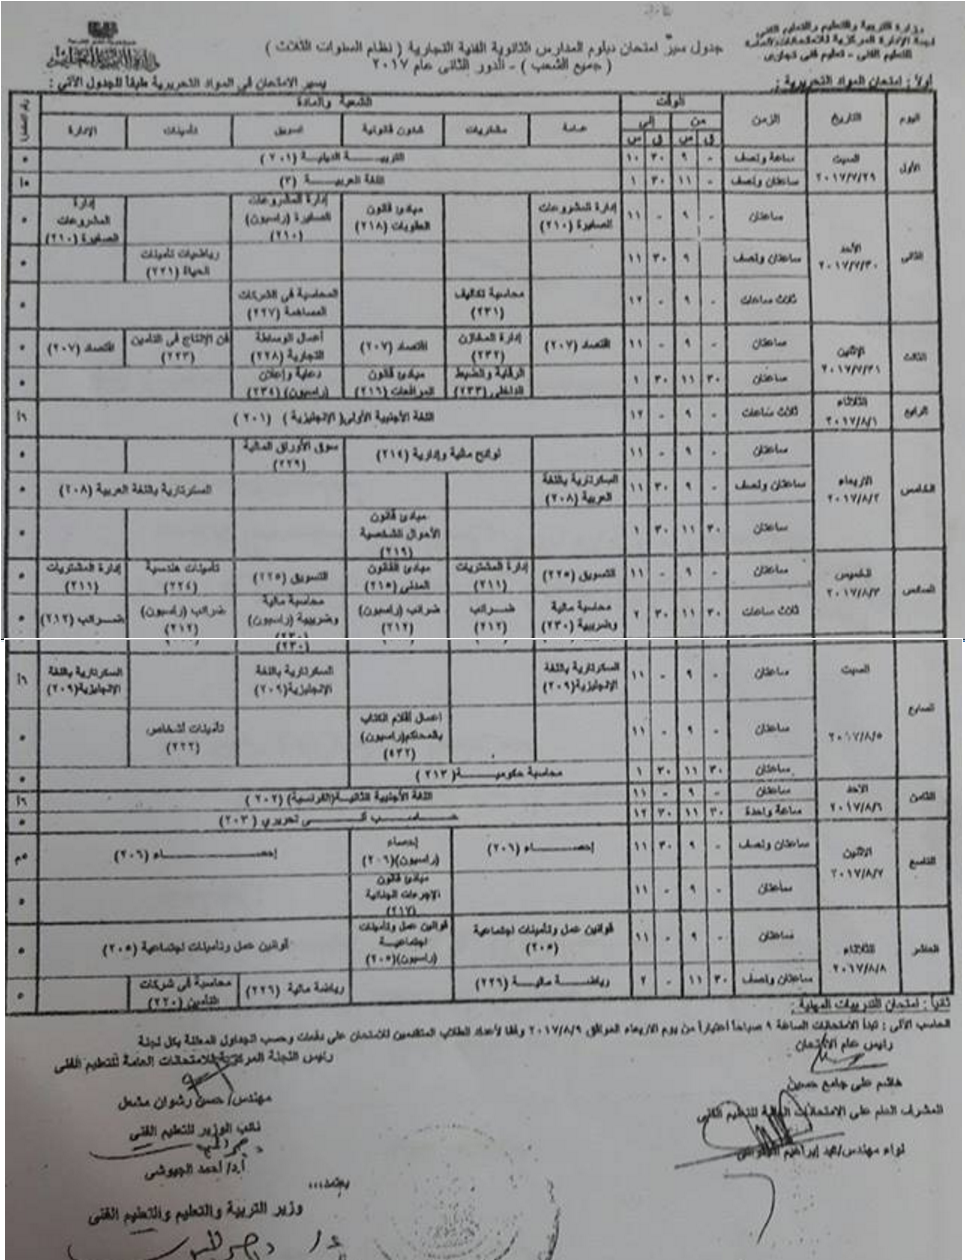 وزارة التربية والتعليم والتعليم الفني
لجنة الإدارة المركزية للامتحانات العامة
للتعليم الفني - تعليم فني تجاري
جدول سير امتحان دبلوم المدارس الثانوية الفنية التجارية ( نظام السنوات الثلاث )
( جميع الشعب ) - الدور الثاني عام ٢٠١٧
أولاً : امتحان المواد التحريرية : يسير الامتحان في المواد التحريرية طبقا للجدول الآتي :
اليوم التاريخ الزمن الوقت الشعبة والمادة
من إلى عامة مشتريات شئون قانونية تسويق تأمينات الإدارة
ق س ق س
الأول السبت ٢٠١٧/٧/٢٩ ساعة ونصف - ٩ ٣٠ ١٠ التربية الدينية (٢٠١) ٥
ساعتان ونصف - ١١ ٣٠ ١ اللغة العربية (٣) ١٥
الثاني الأحد ٢٠١٧/٧/٣٠ ساعتان - ٩ - ١١ إدارة المشروعات الصغيرة (٢١٠) مبادئ قانون العقوبات (٢١٨) إدارة المشروعات الصغيرة (راسبون) (٢١٠) إدارة المشروعات الصغيرة (٢١٠) ٥
ساعتان ونصف ٩ ٣٠ ١١ رياضيات تأمينات الحياة (٢٢١) ٥
ثلاث ساعات - ٩ - ١٢ محاسبة تكاليف (٢٣١) المحاسبة في الشركات المساهمة (٢٢٧) ٥
الثالث الإثنين ٢٠١٧/٧/٣١ ساعتان - ٩ - ١١ اقتصاد (٢٠٧) إدارة المخازن (٢٣٢) اقتصاد (٢٠٧) أعمال الوساطة التجارية (٢٢٨) فن الإنتاج في التأمين (٢٢٣) اقتصاد (٢٠٧) ٥
ساعتان ٣٠ ١١ ٣٠ ١ الرقابة والضبط الداخلي (٢٣٣) مبادئ قانون المرافعات (٢١٦) دعاية وإعلان (راسبون) (٢٣٤) ٥
الرابع الثلاثاء ٢٠١٧/٨/١ ثلاث ساعات - ٩ - ١٢ اللغة الأجنبية الأولى( الإنجليزية ) (٢٠١)
الخامس الأربعاء ٢٠١٧/٨/٢ ساعتان - ٩ - ١١ لوائح مالية وإدارية (٢١٤) سوق الأوراق المالية (٢٢٩) ٥
ساعتان ونصف - ٩ ٣٠ ١١ السكرتارية باللغة العربية (٢٠٨) السكرتارية باللغة العربية (٢٠٨) ٥
ساعتان ٣٠ ١١ ٣٠ ١ مبادئ قانون الأحوال الشخصية (٢١٩) ٥
السادس الخميس ٢٠١٧/٨/٣ ساعتان - ٩ - ١١ التسويق (٢٢٥) إدارة المشتريات (٢١١) مبادئ القانون المدني (٢١٥) التسويق (٢٢٥) تأمينات هندسية (٢٢٤) إدارة المشتريات (٢١١) ٥
ثلاث ساعات ٣٠ ١١ ٣٠ ٢ محاسبة مالية وضريبية (٢٣٠) ضرائب (٢١٢) ضرائب (راسبون) (٢١٢) محاسبة مالية وضريبية (راسبون) (٢٣٠) ضرائب (راسبون) (٢١٢) ضرائب (٢١٢) ٥
السابع السبت ٢٠١٧/٨/٥ ساعتان - ٩ - ١١ السكرتارية باللغة الإنجليزية (٢٠٩) السكرتارية باللغة الإنجليزية (٢٠٩) السكرتارية باللغة الإنجليزية (٢٠٩)
ساعتان - ٩ - ١١ أعمال أقلام الكتاب بالمحاكم(راسبون) تأمينات أشخاص (٢٢٢) ٥
ساعتان ٣٠ ١١ ٣٠ ١ محاسبة حكومية (٢١٣) ٥
الثامن الأحد ٢٠١٧/٨/٦ ساعتان - ٩ - ١١ اللغة الأجنبية الثانية(الفرنسية) (٢٠٢)
ساعة واحدة ٣٠ ١١ ٣٠ ١٢ حاسب آلي تحريري (٢٠٣) ٥
التاسع الإثنين ٢٠١٧/٨/٧ ساعتان ونصف - ٩ ٣٠ ١١ إحصاء (٢٠٦) إحصاء (راسبون)(٢٠٦) إحصاء (٢٠٦)
ساعتان - ٩ - ١١ مبادئ قانون الإجراءات الجنائية (٢١٧) ٥
العاشر الثلاثاء ٢٠١٧/٨/٨ ساعتان - ٩ - ١١ قوانين عمل وتأمينات اجتماعية (٢٠٥) قوانين عمل وتأمينات اجتماعية (راسبون)(٢٠٥) قوانين عمل وتأمينات اجتماعية (٢٠٥) ٥
ساعتان ونصف ٣٠ ١١ - ٢ رياضة مالية (٢٢٦) رياضة مالية (٢٢٦) محاسبة في شركات التأمين (٢٢٠) ٥
ثانياً : امتحان التدريبات المهنية :
الحاسب الآلي : تبدأ الامتحانات الساعة ٩ صباحاً اعتباراً من يوم الأربعاء الموافق ٢٠١٧/٨/٩ وفقا لأعداد الطلاب المتقدمين للامتحان على دفعات وحسب الجداول المعلنة بكل لجنة
رئيس عام الامتحان
هاشم علي جامع حسين
المشرف العام على الامتحانات العامة للتعليم الفني
لواء مهندس/
رئيس اللجنة المركزية للامتحانات العامة للتعليم الفني
مهندس/ حسن رشوان مشعل
نائب الوزير للتعليم الفني
أ.د/ أحمد الجيوشي
يعتمد،،،
وزير التربية والتعليم والتعليم الفني